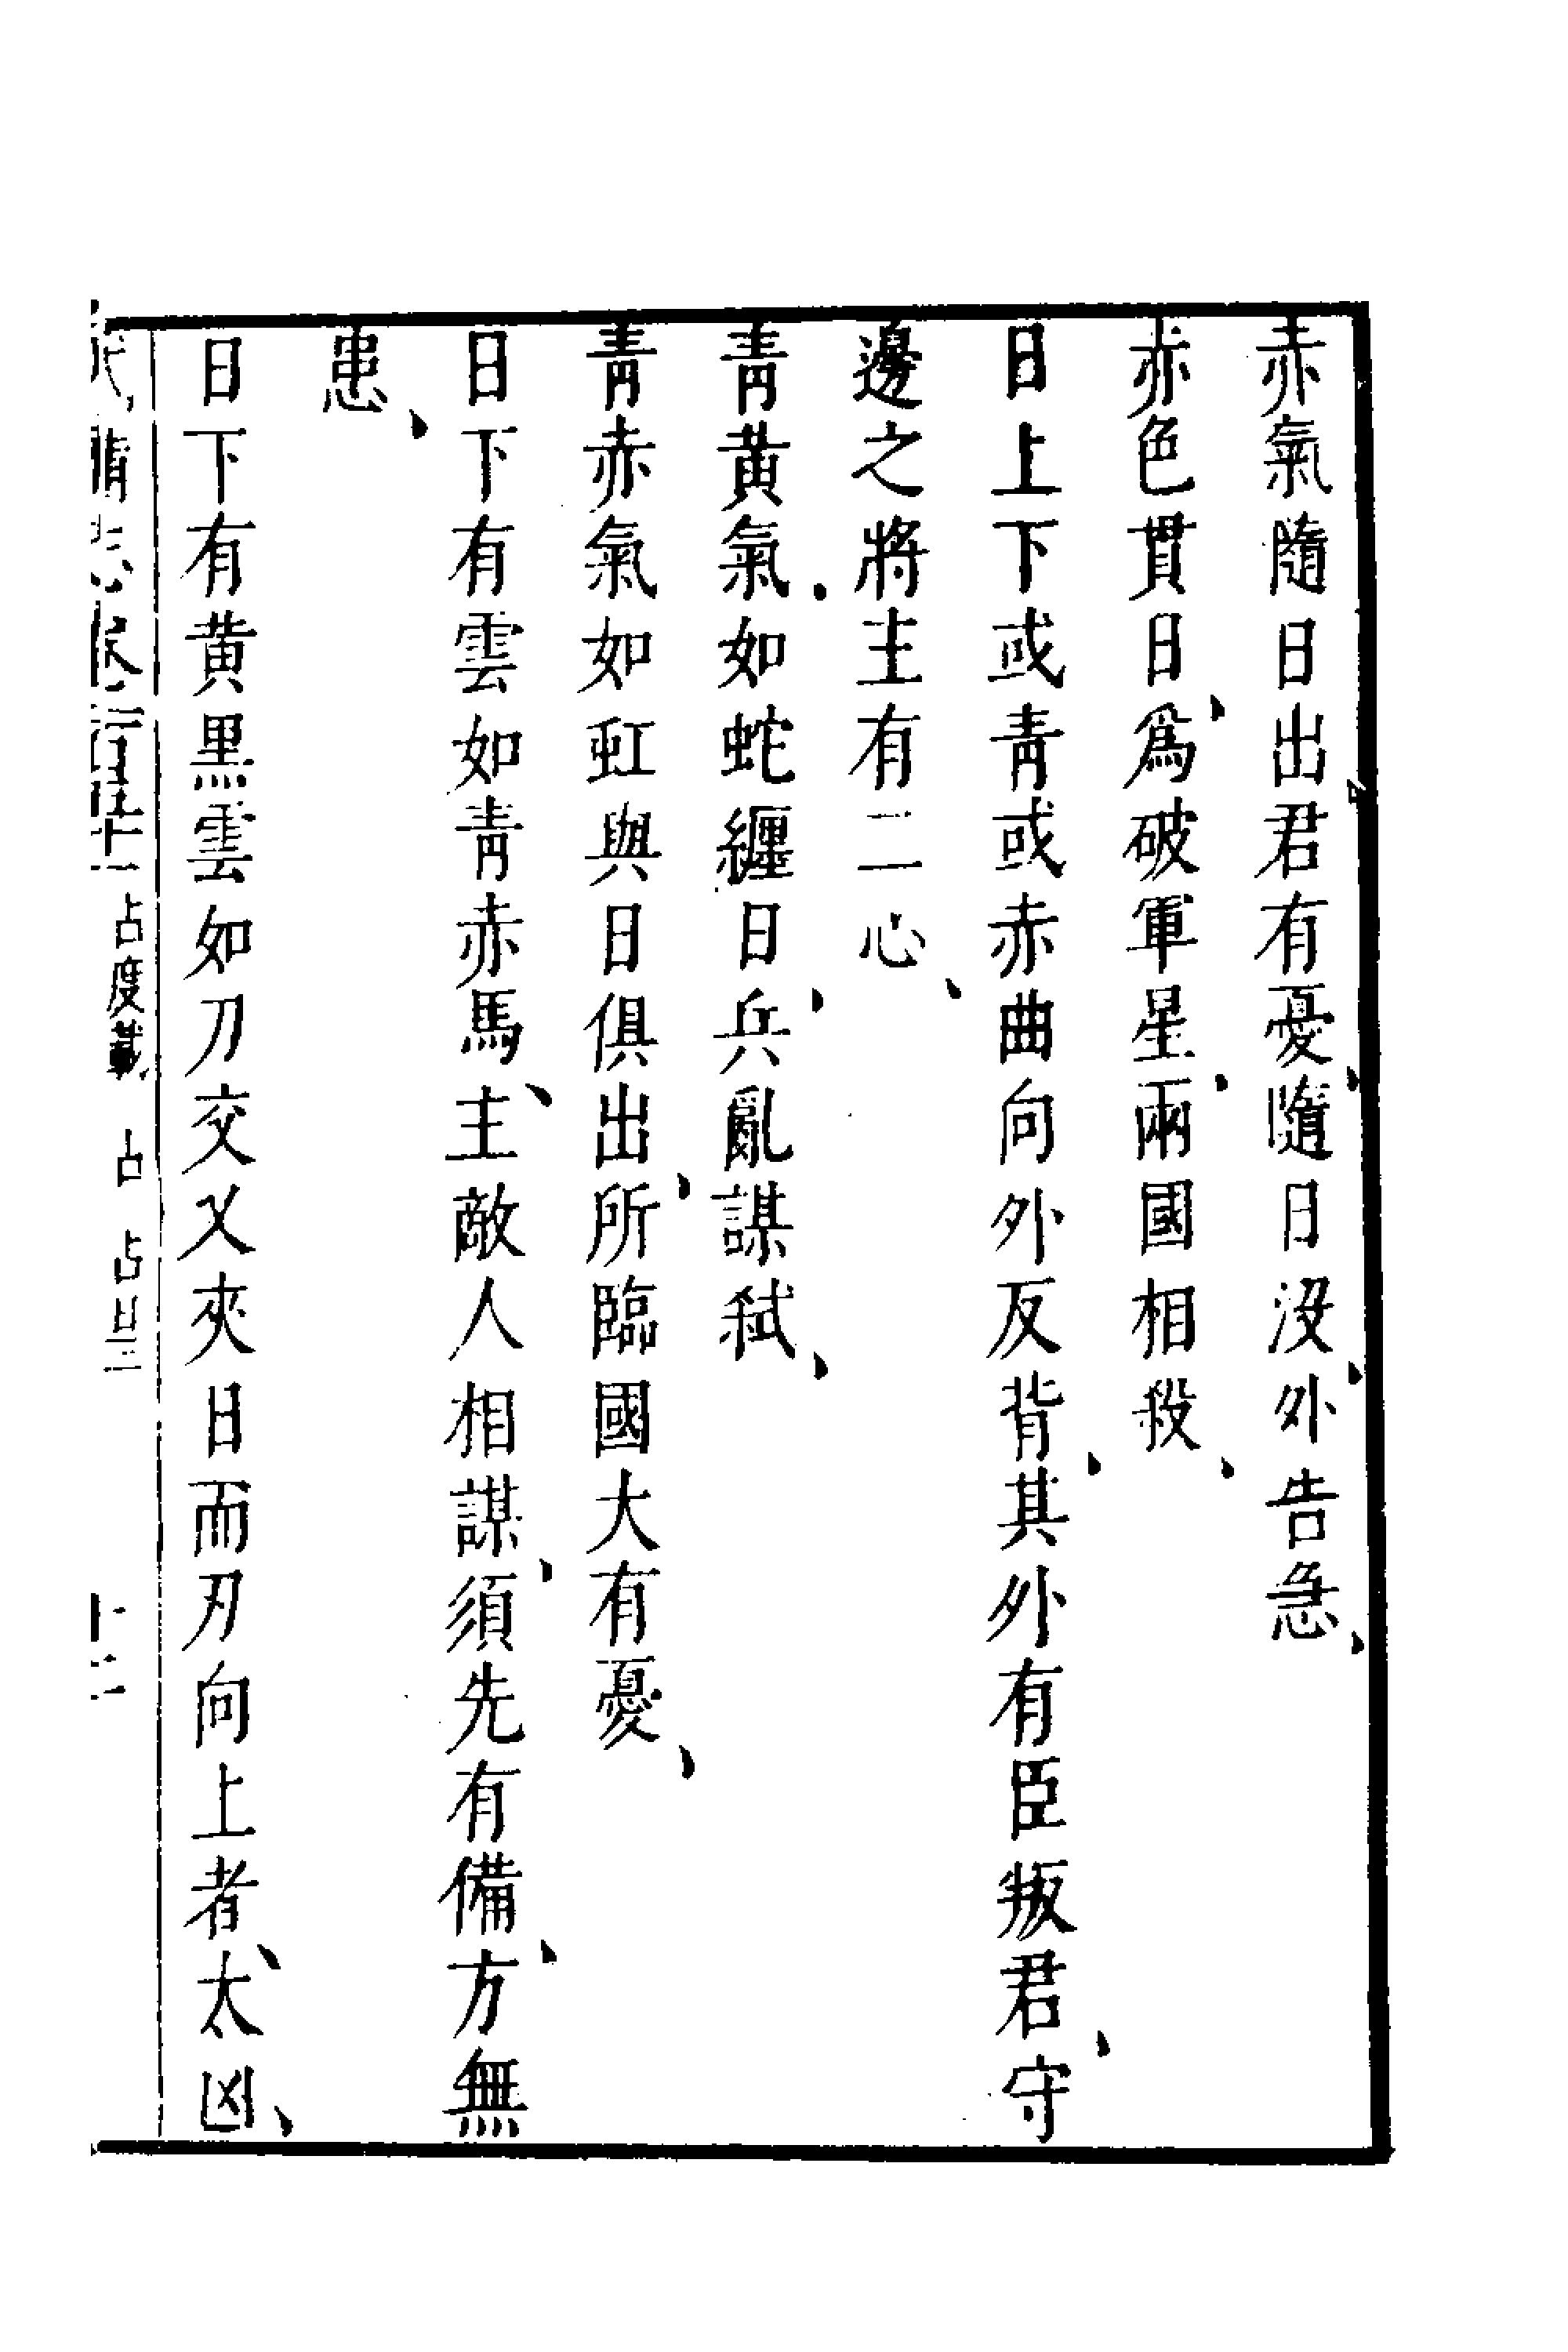 赤氣隨日出、君有憂、隨日沒、外告急、
赤色貫日、爲破軍星、兩國相殺、
日上下或青或赤曲向外反背、其外有臣叛君、守
邊之將主有二心、
青黃氣、如蛇纏日、兵亂謀弑、
青赤氣如虹與日俱出、所臨國大有憂、
日下有雲如青赤馬、主敵人相謀、須先有備、方無
患、
日下有黃黑雲如刀交乂夾日而刃向上者、太凶、
占度載 占 占日三
十二